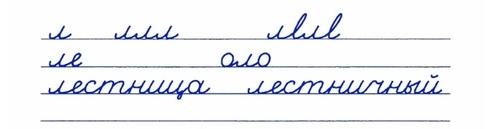 л ллл лвлв
ле оло
лестница лестничный